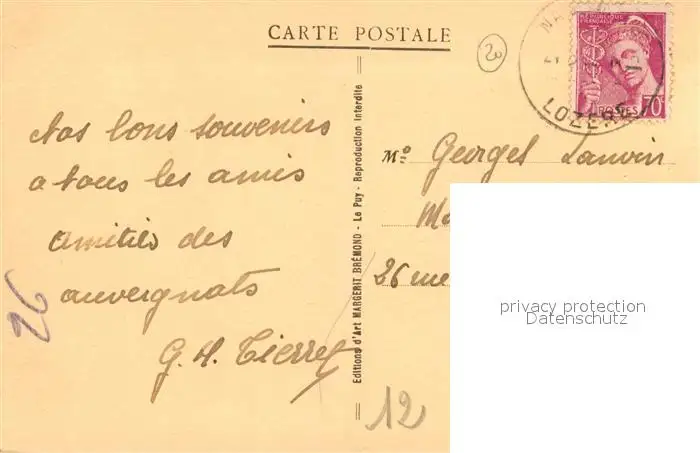 CARTE POSTALE
20
RÉPUBLIQUE
FRANÇAISE
POSTES 70c
LOZERE
Nos bons souvenirs
a tous les amis
Amitiés des
auvergnats
G. H.
26
Editions d'Art MARGERIT BRÉMOND - Le Puy - Reproduction interdite
Mo Georges Lanvin
26 rue
12
privacy protection
Datenschutz